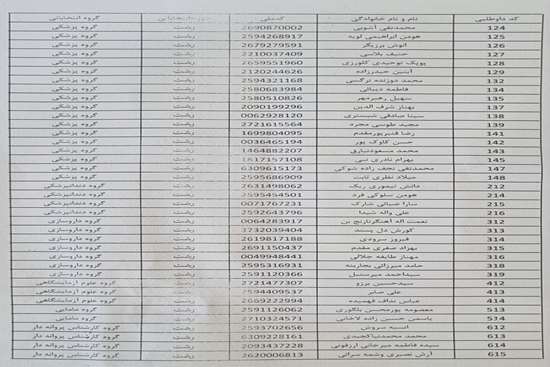 کد داوطلبی نام و نام خانوادگی کدملی حوزه انتخابیه گروه انتخاباتی
124 محمدتقی آشوبی 2690870002 رشت گروه پزشکی
125 هومن ابراهیمی لویه 2594268917 رشت گروه پزشکی
126 انوش برزیگر 2679279591 رشت گروه پزشکی
127 حنیف بلاسی 2210037409 رشت گروه پزشکی
128 پوپک توحیدی کلورزی 2659551960 رشت گروه پزشکی
129 آبتین حیدرزاده 2120244626 رشت گروه پزشکی
132 محمد دوزنده نرگسی 2594321168 رشت گروه پزشکی
134 فاطمه دیبائی 2580683984 رشت گروه پزشکی
135 سهیل رهبرمهر 2580510826 رشت گروه پزشکی
137 بهناز شرف الدین 2090199296 رشت گروه پزشکی
138 سینا صادقی شبستری 0062928120 رشت گروه پزشکی
139 مجید طوسی مجرد 2721615564 رشت گروه پزشکی
141 رضا قنبرپورمقدم 1699804095 رشت گروه پزشکی
142 حسن کاوک پور 0036465194 رشت گروه پزشکی
143 محمد مسعودنیارق 1464882207 رشت گروه پزشکی
145 بهرام نادری نبی 1817157108 رشت گروه پزشکی
147 محمدتقی نجف زاده شوکی 6309615173 رشت گروه پزشکی
148 میلاد نظری ثابت 2595686909 رشت گروه پزشکی
212 دانش تیموری ریک 2631498062 رشت گروه دندانپزشکی
213 هومن سلوکی فرد 2595454501 رشت گروه دندانپزشکی
215 سارا ضیائی شارک 0071767231 رشت گروه دندانپزشکی
216 علی واله شیما 2592643796 رشت گروه دندانپزشکی
312 نعمت اله آهنگرنارنج بن 0064283917 رشت گروه داروسازی
313 کورش دل پسند 3732039404 رشت گروه داروسازی
314 فیروز سرودی 2619817188 رشت گروه داروسازی
315 بهزاد صفری مقدم 2691150437 رشت گروه داروسازی
316 مهناز طایفه جلالی 0049948441 رشت گروه داروسازی
318 حامد میرزائی بجاربنه 2595316931 رشت گروه داروسازی
319 سیداحمد میرسنبل 2591120366 رشت گروه داروسازی
412 سیدحسین برزو 2721477307 رشت گروه علوم آزمایشگاهی
413 علی صابر 2594409537 رشت گروه علوم آزمایشگاهی
414 عباس نداف فهمیده 2669222994 رشت گروه علوم آزمایشگاهی
513 معصومه پورمحسن بلگوری 2591126062 رشت گروه مامایی
514 یاسمن حسن زاده لاخانی 2710324571 رشت گروه مامایی
612 انسیه سروش 2593702656 رشت گروه کارشناس پروانه دار
613 محمد محمدنیاگنجیدی 6309228161 رشت گروه کارشناس پروانه دار
614 سیده فاطمه میرجانی ارزفونی 2093437228 رشت گروه کارشناس پروانه دار
615 آرش نصیری وشمه سرائی 2620006813 رشت گروه کارشناس پروانه دار